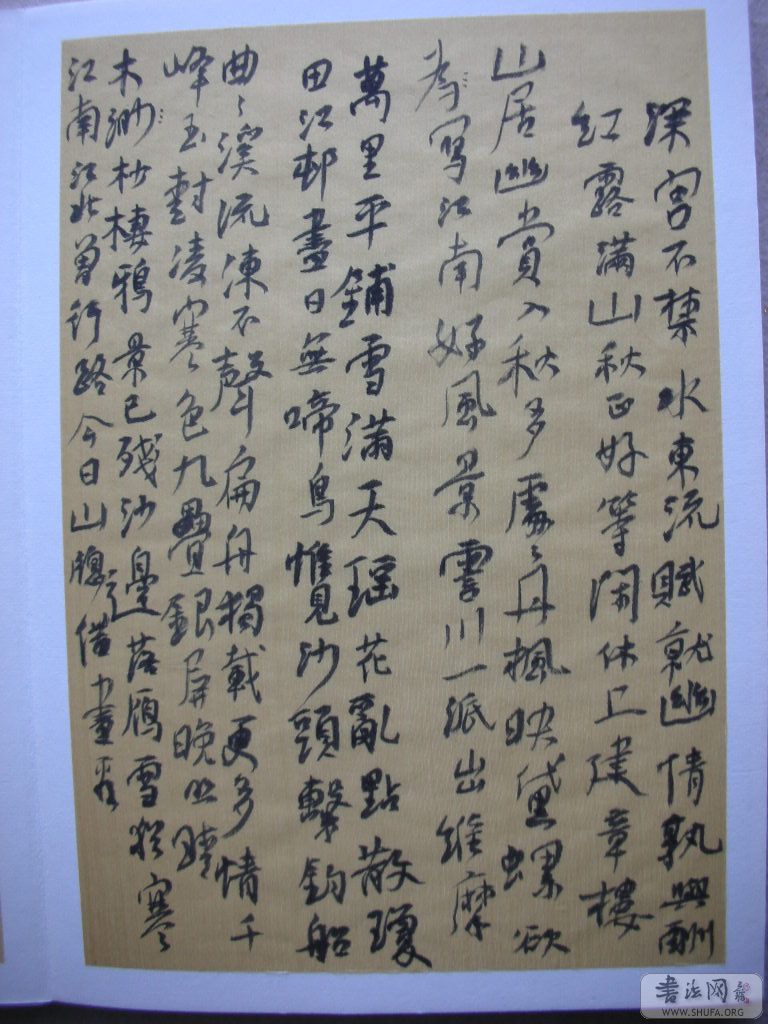 深宫不禁水東流賦就幽情孰與酬
紅露满山秋正好等闲休上建章樓
山居幽賞入秋多處〻丹楓映黛螺欲
為寫江南好風景霅川一派出維摩
萬里平鋪雪满天瑶花亂點散瓊
田江邨盡日無啼鳥惟見沙頭繫釣船
曲〻溪流凍不聲扁舟獨載更多情千
峰玉對凌寒色九疊銀屏晚照晴
木渺杪棲鴉景已殘沙邊落鴈雪猶寒
江南江北曾行路今日山牕借畫看
书法网
WWW.SHUFA.ORG